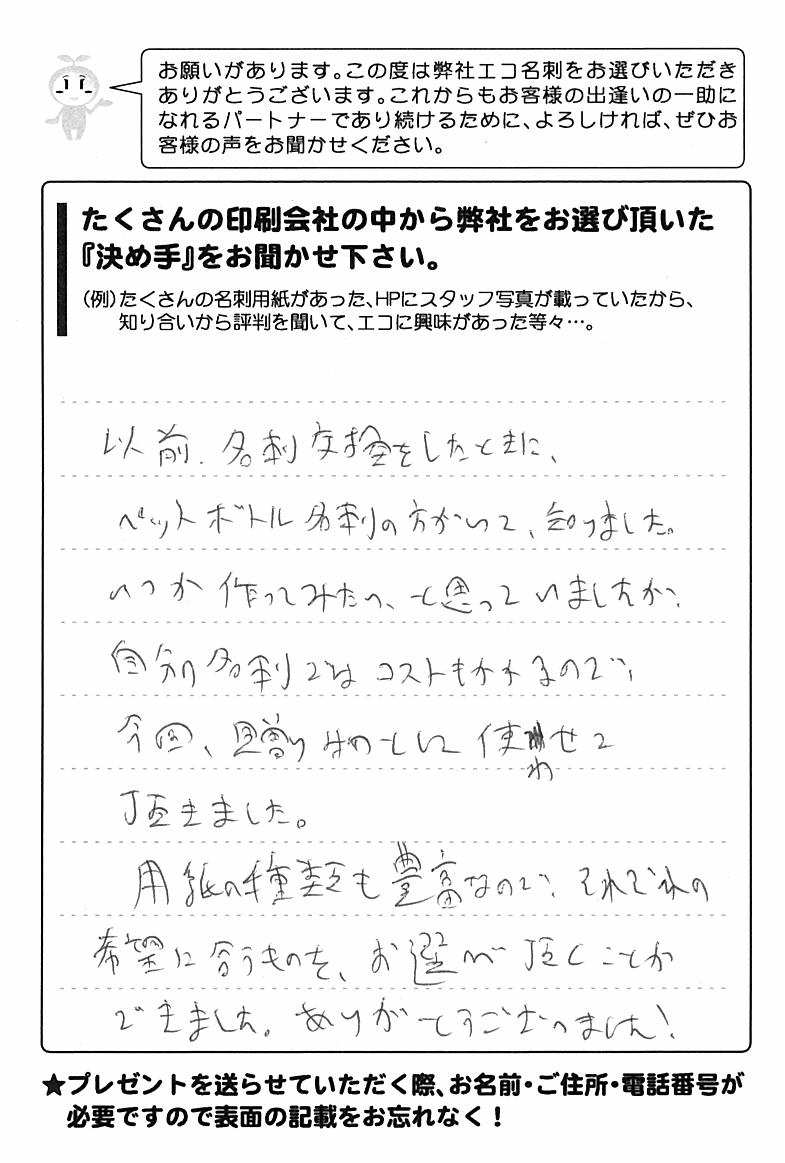 お願いがあります。この度は弊社エコ名刺をお選びいただき
ありがとうございます。これからもお客様の出逢いの一助に
なれるパートナーであり続けるために、よろしければ、ぜひお
客様の声をお聞かせください。
たくさんの印刷会社の中から弊社をお選び頂いた
『決め手』をお聞かせ下さい。
(例)たくさんの名刺用紙があった、HPにスタッフ写真が載っていたから、
知り合いから評判を聞いて、エコに興味があった等々…。
以前、名刺交換をしたときに、
ペットボトル名刺の方がいて、知りました。
いつか作ってみたい、と思っていましたが、
自分の名刺ではコストもかかるので、
今回、贈り物として使わせて
頂きました。
用紙の種類も豊富なので、それぞれの
希望に合うものを、お選び頂くことが
できました。ありがとうございました!
★プレゼントを送らせていただく際、お名前・ご住所・電話番号が
必要ですので表面の記載をお忘れなく!